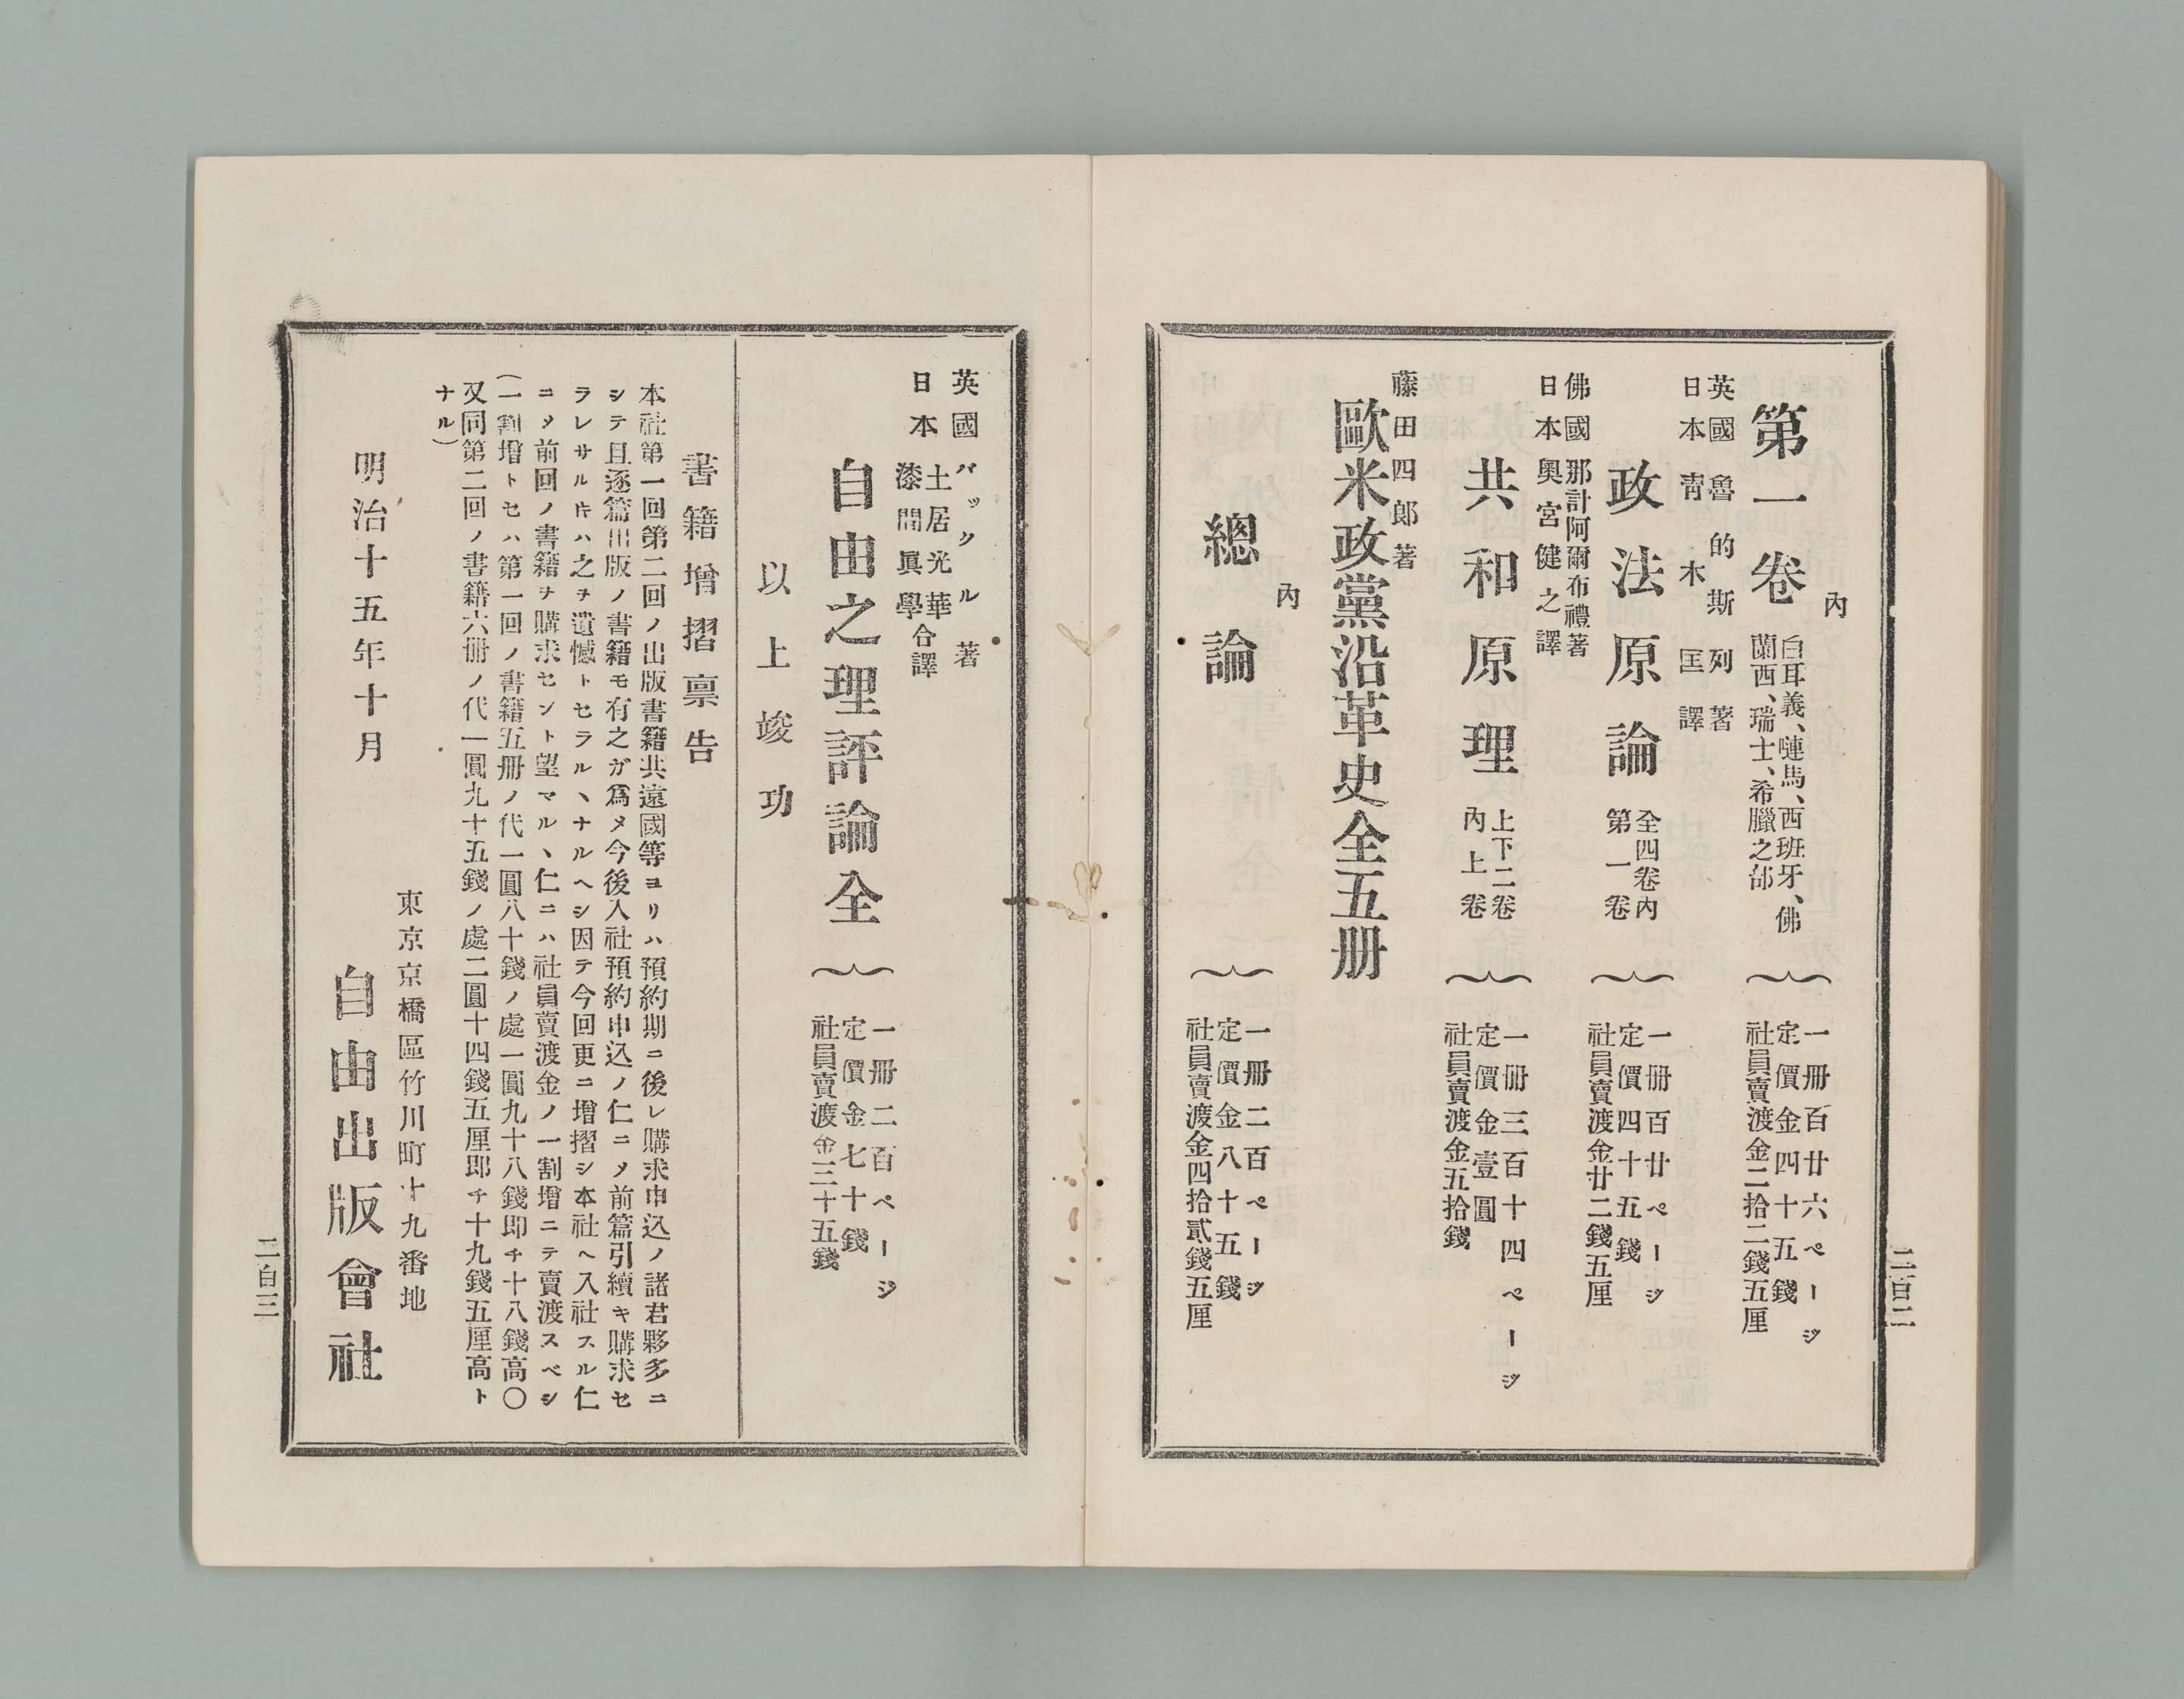 內
第一卷
白耳義、嗹馬、西班牙、佛
蘭西、瑞士、希臘之部
一册百廿六ページ
定價金四十五錢
社員賣渡金二拾二錢五厘
英國魯的斯列著
日本靑木匡譯
政法原論
全四卷內
第一卷
一册百廿ページ
定價四十五錢
社員賣渡金廿二錢五厘
佛國那計阿爾布禮著
日本奧宮健之譯
共和原理
上下二卷
內上卷
一册三百十四ページ
定價金壹圓
社員賣渡金五拾錢
藤田四郞著
歐米政黨沿革史全五册
內
總論
一册二百ページ
定價金八十五錢
社員賣渡金四拾貳錢五厘
二百二
英國バックル著
日本土居光華
漆間眞學合譯
自由之理評論全
一册二百ページ
定價金七十錢
社員賣渡金三十五錢
以上竣功
書籍增摺禀告
本社第一回第二回ノ出版書籍共遠國等ヨリハ預約期ニ後レ購求申込ノ諸君夥多ニ
シテ且逐篇出版ノ書籍モ有之ガ爲メ今後入社預約申込ノ仁ニメ前篇引續キ購求セ
ラレサルキハ之ヲ遺憾トセラルヽナルヘシ因テ今回更ニ增摺シ本社ヘ入社スル仁
ニメ前回ノ書籍ヲ購求セント望マルヽ仁ニハ社員賣渡金ノ一割增ニテ賣渡スベシ
(一割增トセハ第一回ノ書籍五册ノ代一圓八十錢ノ處一圓九十八錢即チ十八錢高〇
又同第二回ノ書籍六册ノ代一圓九十五錢ノ處二圓十四錢五厘即チ十九錢五厘高ト
ナル)
明治十五年十月
東京京橋區竹川町十九番地
自由出版會社
二百三